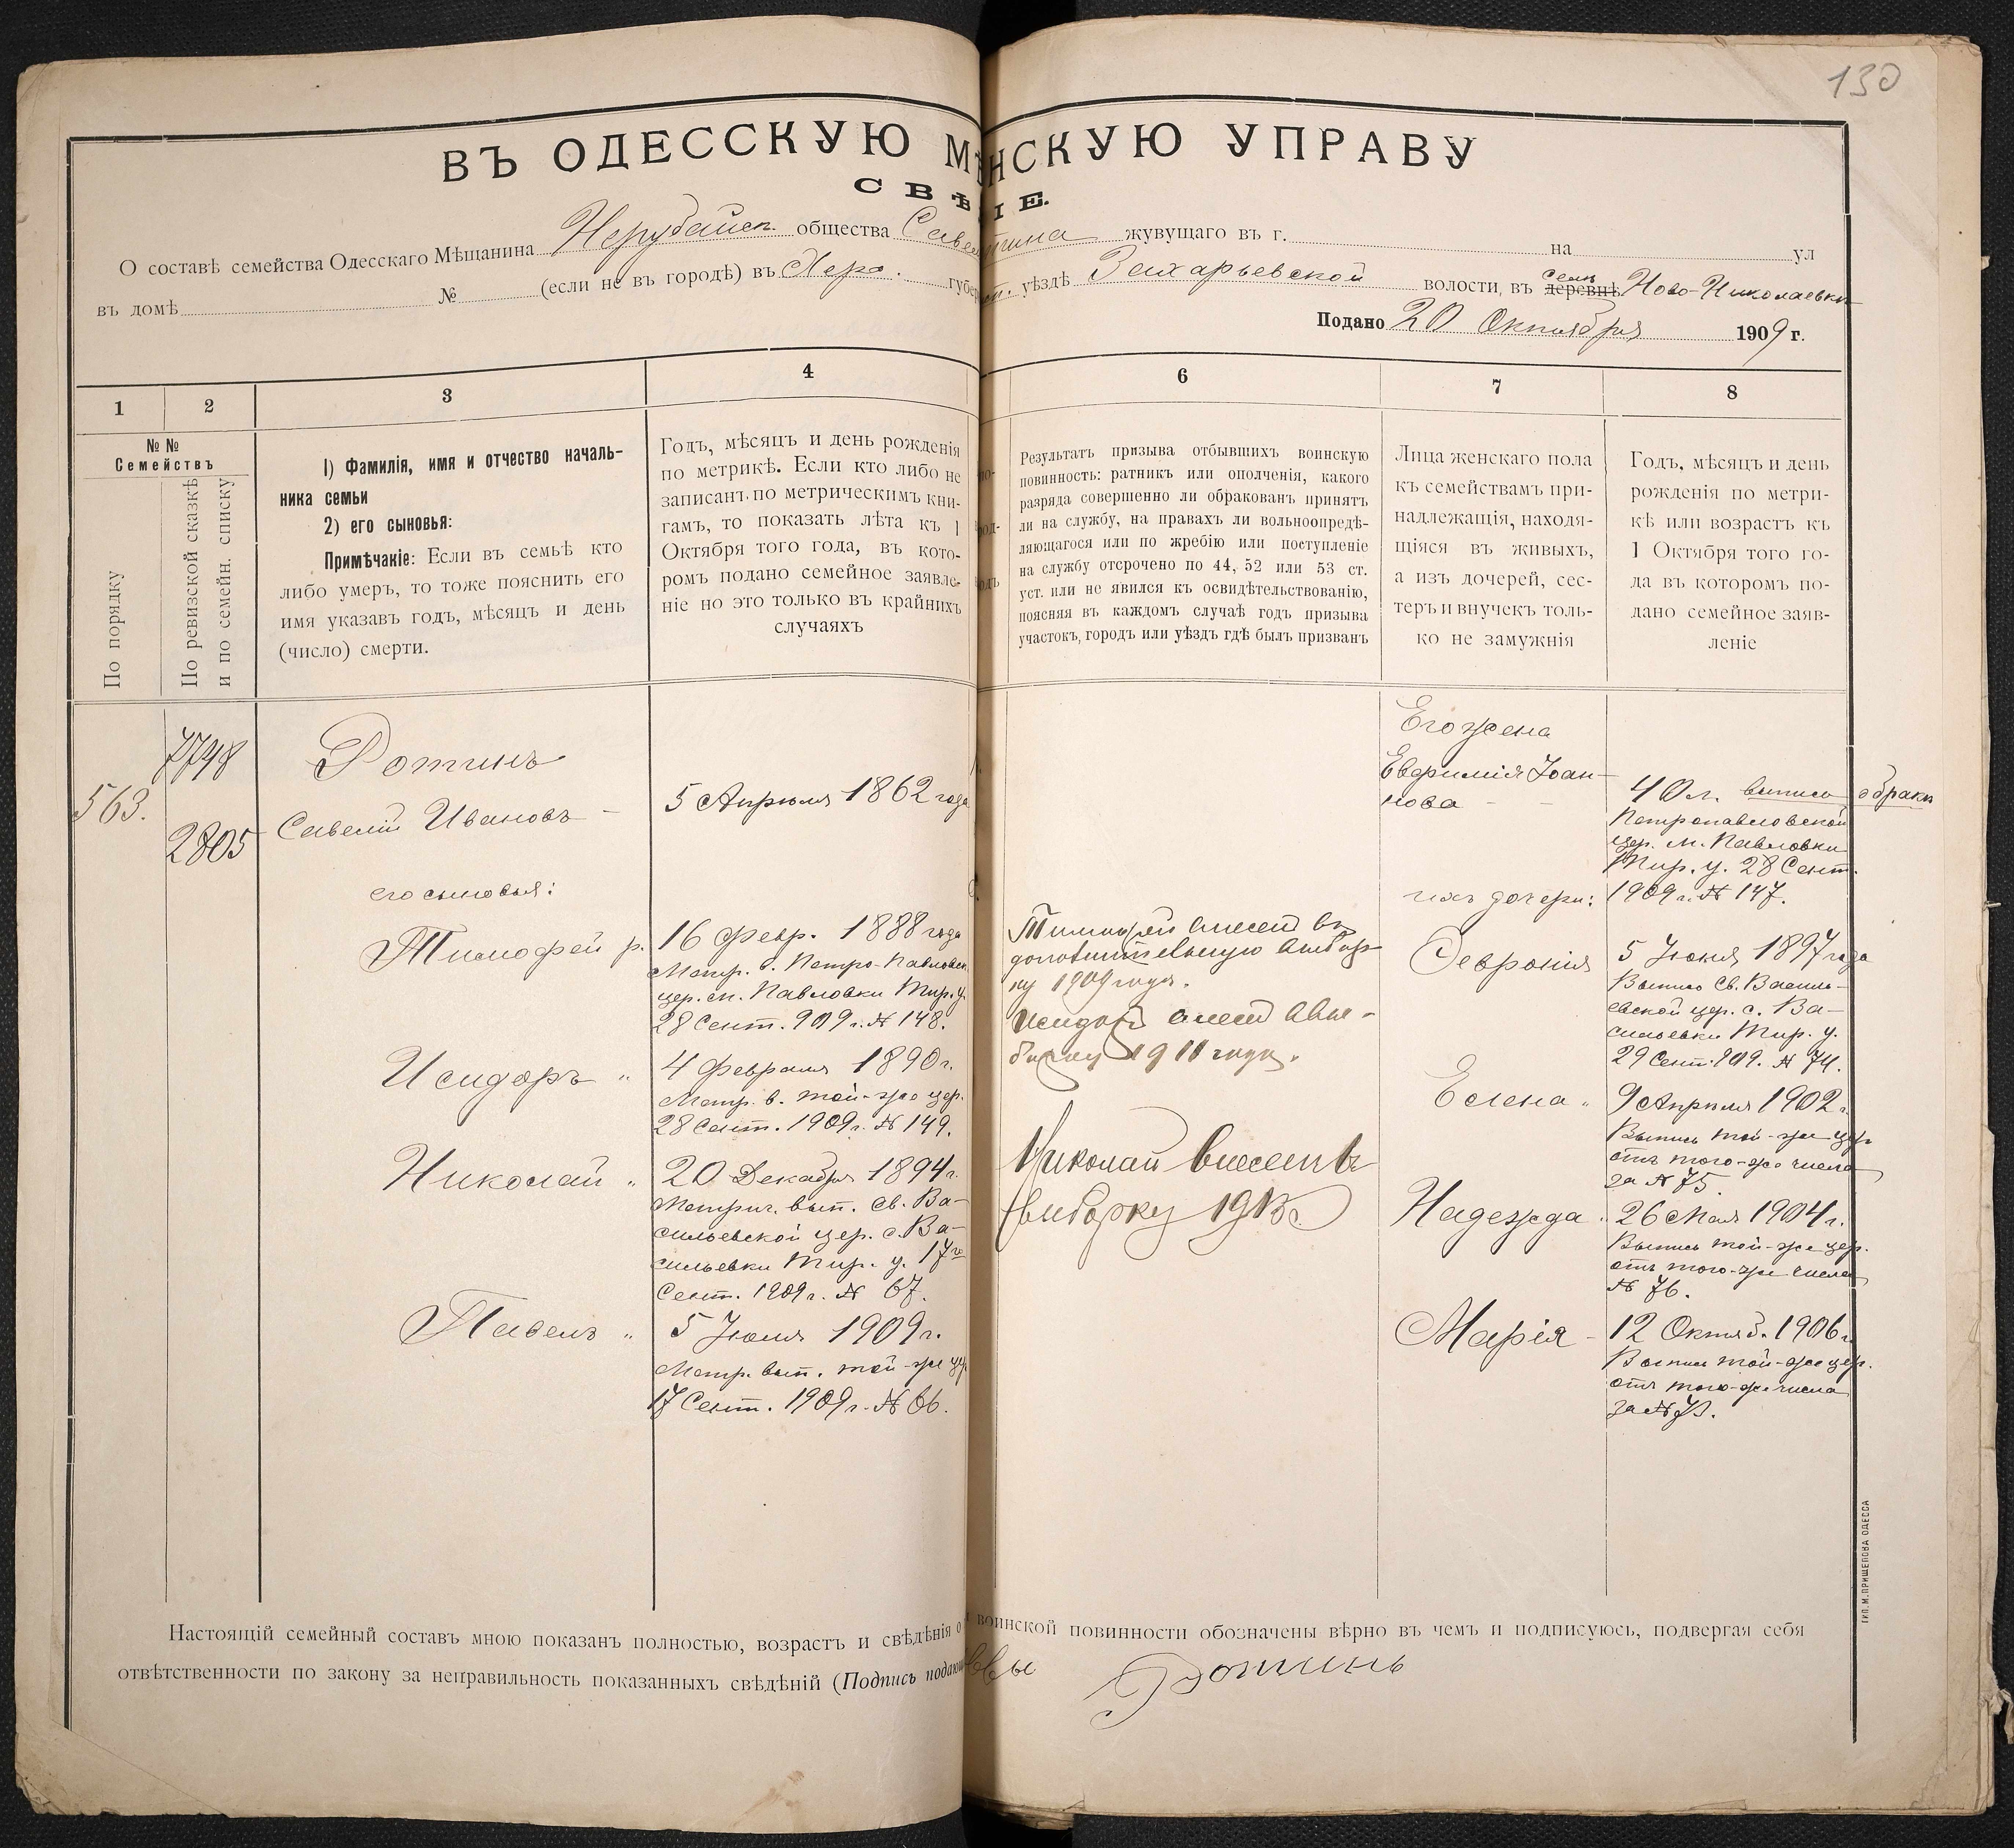 130
ВЪ ОДЕССКУЮ М НСКУЮ УПРАВУ
СВѢ IЕ.
О составѣ семейства Одесскаго Мѣщанина Нерубайск. общества Саве жувущаго въ г. на ул
въ домѣ № (если не въ городѣ) въ Херс. губе уѣздѣ Захарьевской волости, въ деревнѣ Селѣ Ново-Николаевки
Подано 20 Октября 1909 г.
1
2
3
4
6
7
8
№ №
Семействъ
По порядку
По ревизской сказкѣ
и по семейн. списку
1) Фамилія, имя и отчество началь-
ника семьи
2) его сыновья:
Примѣчаніе: Если въ семьѣ кто
либо умеръ, то тоже пояснить его
имя указавъ годъ, мѣсяцъ и день
(число) смерти.
Годъ, мѣсяцъ и день рожденія
по метрикѣ. Если кто либо не
записанъ по метрическимъ кни-
гамъ, то показать лѣта къ 1
Октября того года, въ кото-
ромъ подано семейное заявле-
ніе но это только въ крайнихъ
случаяхъ
Результатъ призыва отбывшихъ воинскую
повинность: ратникъ или ополченія, какого
разряда совершенно ли обракованъ принятъ
ли на службу, на правахъ ли вольноопредѣ-
ляющагося или по жребію или поступленіе
на службу отсрочено по 44, 52 или 53 ст.
уст. или не явился къ освидѣтельствованію,
поясняя въ каждомъ случаѣ годъ призыва
участокъ, городъ или уѣздъ гдѣ былъ призванъ
Лица женскаго пола
къ семействамъ при-
надлежащія, находя-
щіяся въ живыхъ,
а изъ дочерей, сес-
теръ и внучекъ толь-
ко не замужнія
Годъ, мѣсяцъ и день
рожденія по метри-
кѣ или возрастъ къ
1 Октября того го-
да въ которомъ по-
дано семейное заяв-
леніе
563.
7798
2805
Ротинъ
Савелій Ивановъ –
5 Апрѣля 1862 года
его сыновья:
Тимофей р.
16 Февр. 1888 года
Метр. в. Петро-Павловск.
цер. м. Павловки Тир. у.
28 Сент. 909 г. № 148.
Исидоръ "
4 Февраля 1890 г.
Метр. в. той-же цер.
28 Сент. 1909 г. № 149.
Николай "
20 Декабря 1894 г.
Метрич. вып. Св. Ва-
сильевской цер. с. Ва-
сильевки Тир. у. 17го
Сент. 1909 г. № 67.
Павелъ "
5 Іюля 1909 г.
Метр. вып. той-же цер
17 Сент. 1909 г. № 66.
Тимофей внесен в
дополнительную выбор-
ку 1909 года.
Исидор внесен в вы-
борку 1911 года.
Николай внесенъ
выборку 1913
Его жена
Евфимія Іоан-
нова – –
40 л. выпись о браки
Петропавловской
цер. м. Павловки
Тир. у. 28 Сент.
1909 г. № 147.
ихъ дочери:
Февронія
5 Іюня 1897 года
Выпись Св. Василь-
евской цер. с. Ва-
сильевки Тир. у.
29 Сент. 909. № 74.
Елена "
9 Апрѣля 1902 г.
Выпись той-же цер
отъ того-же числа
за № 75.
Надежда "
26 Мая 1904 г.
Выпись той-же цер.
отъ того-же числа
№ 76.
Марія –
12 Октяб. 1906 г.
Выпись той-же цер.
отъ того-же числа
за № 73.
Настоящій семейный составъ мною показанъ полностью, возрастъ и свѣдѣнія о воинской повинности обозначены вѣрно въ чемъ и подписуюсь, подвергая себя
отвѣтственности по закону за неправильность показанныхъ свѣдѣній (Подпись подаю Ротинъ
ТИП. М. ПРИЩЕПОВА ОДЕССА